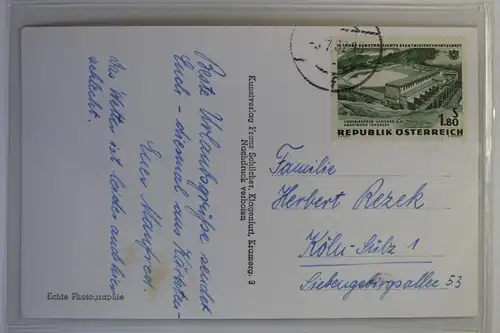 Beste Urlaubsgrüße sendet
Euch - diesmal aus Kärnten -
Euer Manfred.
Das Wetter ist leider auch hier
schlecht.
Echte Photographie
Kunstverlag Franz Schilcher, Klagenfurt, Kramerg. 9
Nachdruck verboten
15 JAHRE VERSTAATLICHTE ELEKTRIZITÄTSWIRTSCHAFT
S
1.80
REPUBLIK ÖSTERREICH
Familie
Herbert Rezek
Köln-Sülz 1
Siebengebirgsallee 53